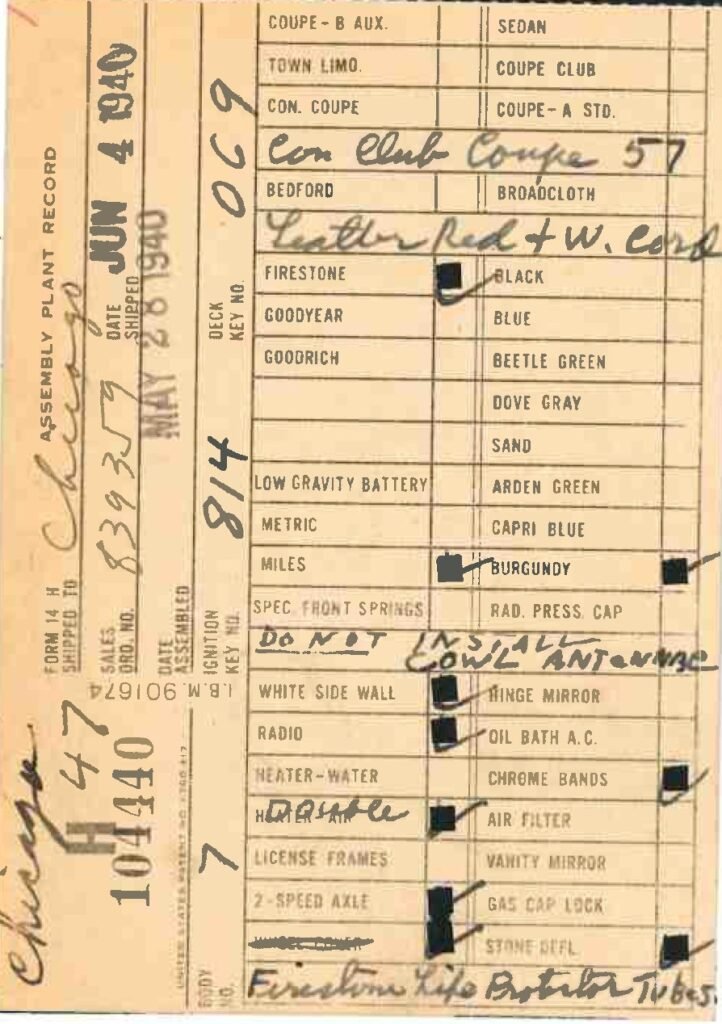 COUPE-B AUX. SEDAN
TOWN LIMO. COUPE CLUB
CON. COUPE COUPE-A STD.
Con Club Coupe 57
BEDFORD BROADCLOTH
Leather Red + W. Cord
FIRESTONE BLACK
GOODYEAR BLUE
GOODRICH BEETLE GREEN
DOVE GRAY
SAND
LOW GRAVITY BATTERY ARDEN GREEN
METRIC CAPRI BLUE
MILES BURGUNDY
SPEC. FRONT SPRINGS RAD. PRESS. CAP
DO NOT INSTALL
COWL ANTENNAE
WHITE SIDE WALL HINGE MIRROR
RADIO OIL BATH A.C.
HEATER-WATER CHROME BANDS
Double
HEATER-AIR AIR FILTER
LICENSE FRAMES VANITY MIRROR
2-SPEED AXLE GAS CAP LOCK
WHEEL COVER STONE DEFL.
Firestone Life Protector Tubes.
ASSEMBLY PLANT RECORD
FORM 14 H
SHIPPED TO Chicago
SALES ORD. NO. 839359
DATE SHIPPED JUN 4 1940
DATE ASSEMBLED MAY 28 1940
IGNITION KEY NO. 814
DECK KEY NO. 069
I.B.M. 901674
Chicago
47
H
104440
UNITED STATES PATENT NO.
BODY NO. 7